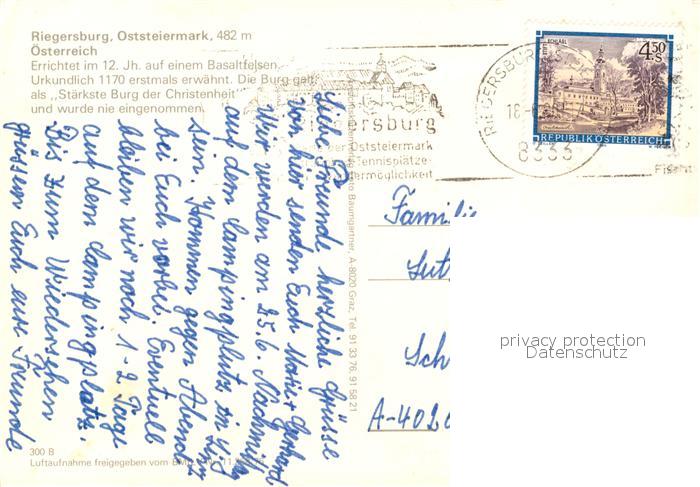 Riegersburg, Oststeiermark, 482 m
Österreich
Errichtet im 12. Jh. auf einem Basaltfelsen.
Urkundlich 1170 erstmals erwähnt. Die Burg galt
als „Stärkste Burg der Christenheit"
und wurde nie eingenommen.
ersburg
der Oststeiermark
Tennisplätze
ermöglichkeit
RIEGERSBURG
18
8333
STIFT SCHLÄGL
4.50
S
REPUBLIK ÖSTERREICH
Liebe Freunde, herzliche Grüsse
von hier senden Euch
Wir werden am 25.6. Nachmittag
auf dem Campingplatz in
sein. Kommen gegen Abend
bei Euch vorbei. Eventuell
bleiben wir noch 1-2 Tage
auf dem Campingplatz.
Bis zum Wiedersehen
grüssen Euch eure Freunde
Baumgartner, A-8020 Graz, Tel. 91 33 76, 91 58 21
Famili
Sut
Sch
A-4020
privacy protection
Datenschutz
300 B
Luftaufnahme freigegeben vom